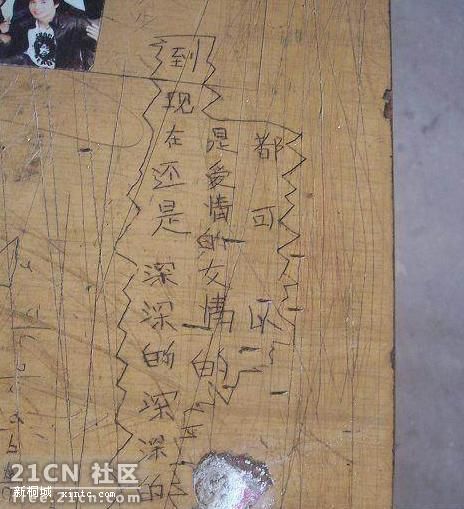 到现在还是深深的深深的
是爱情的女情的
都可以
21CN 社区
free.21cn.com
新桐城 xintc.com